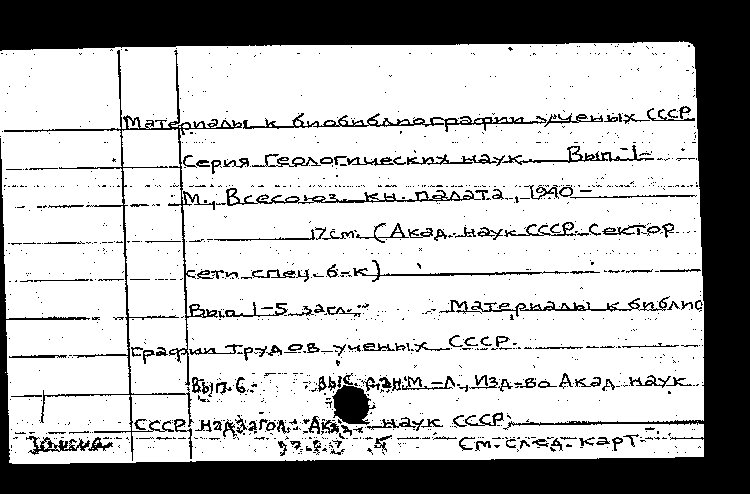 Материалы к биобиблиографии ученых СССР
Серия геологических наук. Вып. 1-
М., Всесоюз. кн. палата, 1940 -
17см. (Акад. наук СССР. Сектор
сети спец. б-к)
Вып. 1-5 загл.: Материалы к библио
графии трудов ученых СССР.
Вып. 6- М.-Л., Изд-во Акад наук
СССР надзагол.: Акад. наук СССР;
Замена. См. след. карт.